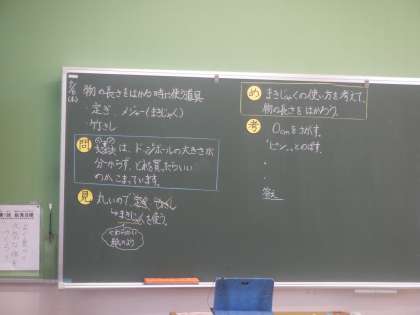 物の長さをはかる時に使う道具
・定ぎ、メジャー(まきじゃく)
・竹ざし
問
は、ドッジボールの大きさが
分からず、どれを買ったらいい
のかこまっています。
見 丸いので、定ぎ 竹ざし
→まきじゃくを使う。
やわらかい
紙のより
め まきじゃくの使い方を考えて、
物の長さをはかろう。
考 0cmをさがす。
"ピン"とのばす。
・
・
答え